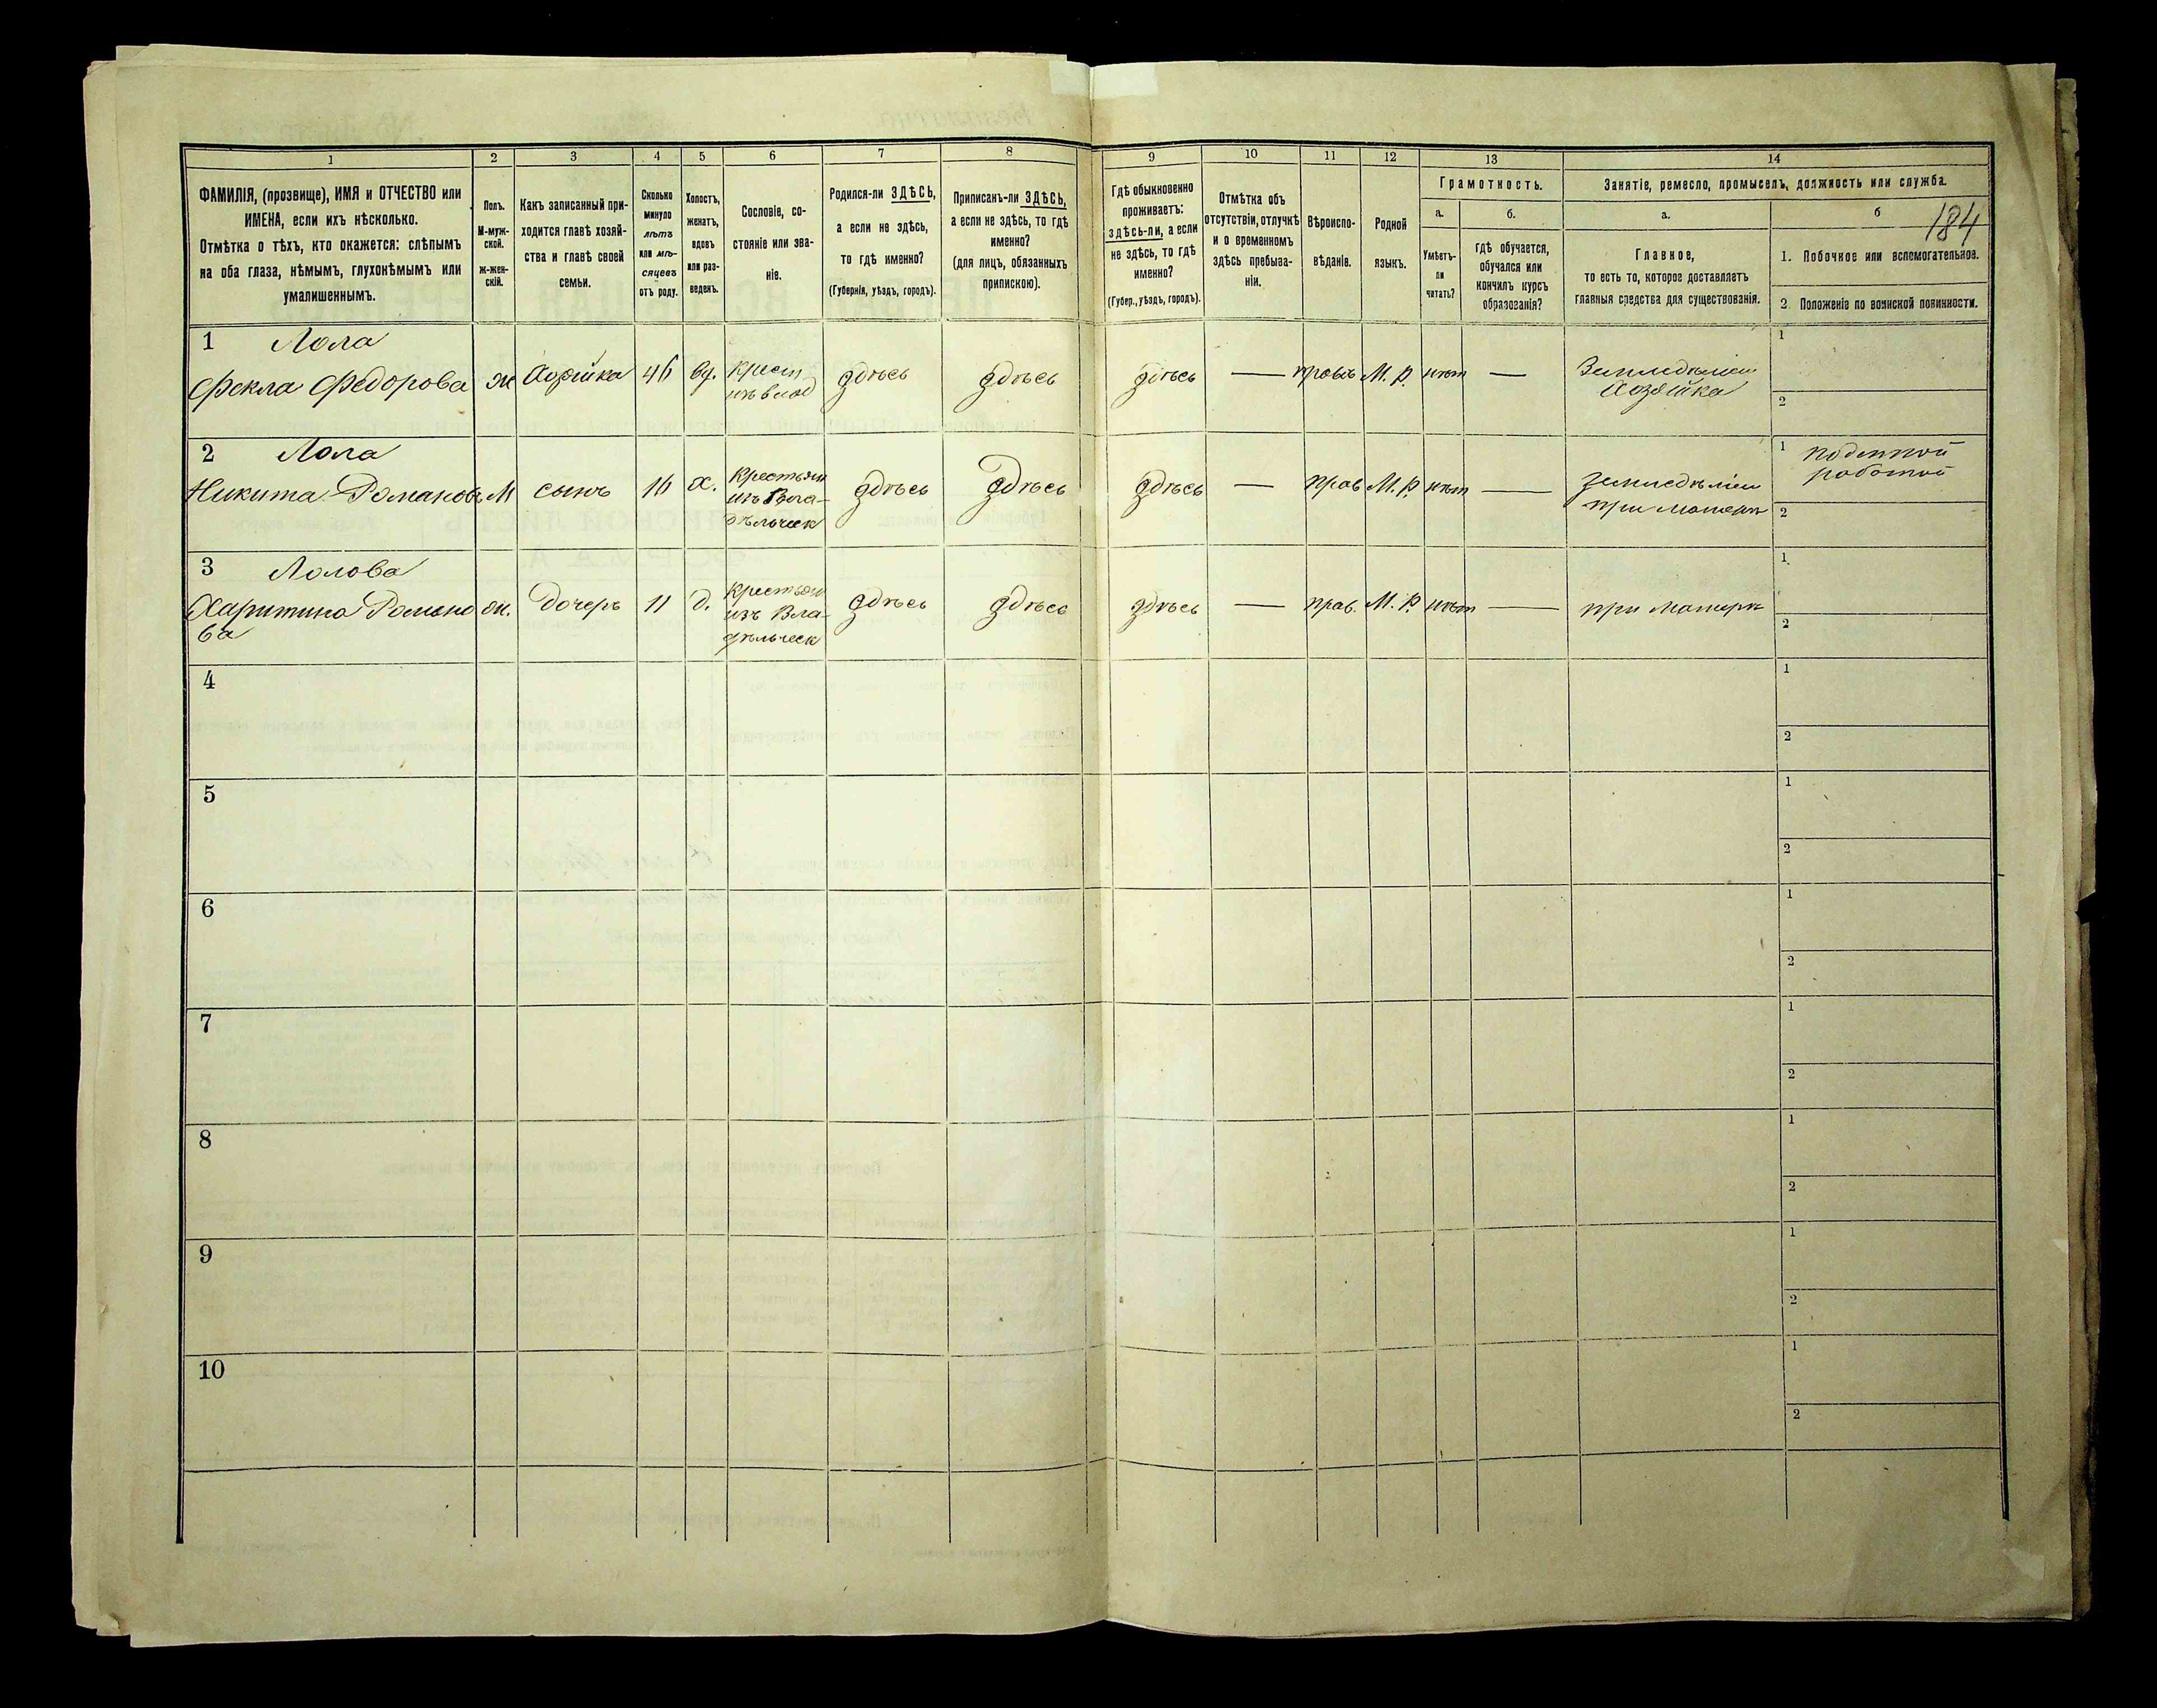 1 2 3 4 5 6 7 8 9 10 11 12 13 14
ФАМИЛІЯ, (прозвище), ИМЯ и ОТЧЕСТВО или
ИМЕНА, если ихъ нѣсколько.
Отмѣтка о тѣхъ, кто окажется: слѣпымъ
на оба глаза, нѣмымъ, глухонѣмымъ или
умалишеннымъ.
Полъ.
М-муж-
ской.
ж-жен-
скій.
Какъ записанный при-
ходится главѣ хозяй-
ства и главѣ своей
семьи.
Сколько
минуло
лѣтъ
или мѣ-
сяцевъ
отъ роду.
Холостъ,
женатъ,
вдовъ
или раз-
веденъ.
Сословіе, со-
стояніе или зва-
ніе.
Родился-ли ЗДѢСЬ,
а если не здѣсь,
то гдѣ именно?
(Губернія, уѣздъ, городъ).
Приписанъ-ли ЗДѢСЬ,
а если не здѣсь, то гдѣ
именно?
(для лицъ, обязанныхъ
припискою).
Гдѣ обыкновенно
проживаетъ:
здѣсь-ли, а если
не здѣсь, то гдѣ
именно?
(Губер., уѣздъ, городъ).
Отмѣтка объ
отсутствіи, отлучкѣ
и о временномъ
здѣсь пребыва-
ніи.
Вѣроиспо-
вѣданіе.
Родной
языкъ.
Грамотность.
а.
Умѣетъ-
ли
читать?
б.
Гдѣ обучается,
обучался или
кончилъ курсъ
образованія?
Занятіе, ремесло, промыселъ, должность или служба.
а.
Главное,
то есть то, которое доставляетъ
главныя средства для существованія.
б
184
1. Побочное или вспомогательное.
2. Положеніе по воинской повинности.
1 Лола
Фекла Федорова
ж
46
вд.
крест
здѣсь
здѣсь
здѣсь
—
М. Р.
нѣт
—
Хозяйка
1
2
2 Лола
Никита Романов
М
сынъ
16
х.
Крестьян
изъ Вла-
дѣльческ
здѣсь
здѣсь
здѣсь
—
прав
М. Р.
нѣт
—
при матери
1
работой
2
3 Лолова
Харитина Романо
ва
ж.
дочерь
11
д.
Крестьян
изъ Вла-
дѣльческ
здѣсь
здѣсь
здѣсь
—
прав.
М. Р.
нѣт
—
при матери
1.
2
4
1
2
5
1
2
6
1
2
7
1
2
8
1
2
9
1
2
10
1
2